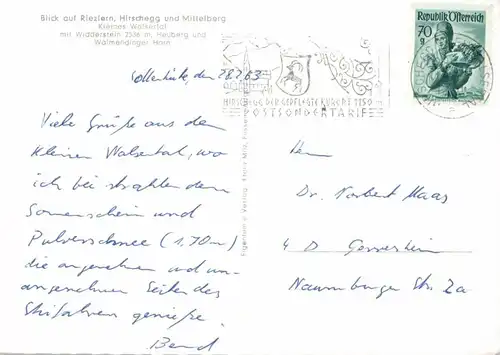 Blick auf Riezlern, Hirschegg und Mittelberg
Kleines Walsertal
mit Widderstein 2536 m, Heuberg und
Walmendinger Horn
den 28.2.63
Viele Grüße aus dem
kleinen Walsertal, wo
ich bei strahlendem
Sonnenschein und
Pulverschnee (1,70 m)
die angenehmen und un-
angenehmen Seiten des
Skifahrens genieße.
Bernd
Eigentum u. Verlag
HIRSCHEGG DER GEPFLEGTE KURORT 1150 m
POSTSONDERTARIF
Republik Österreich
70
g
Herrn
Dr. Norbert Maas
4 D Gerresheim
Naumburger Str. 2a